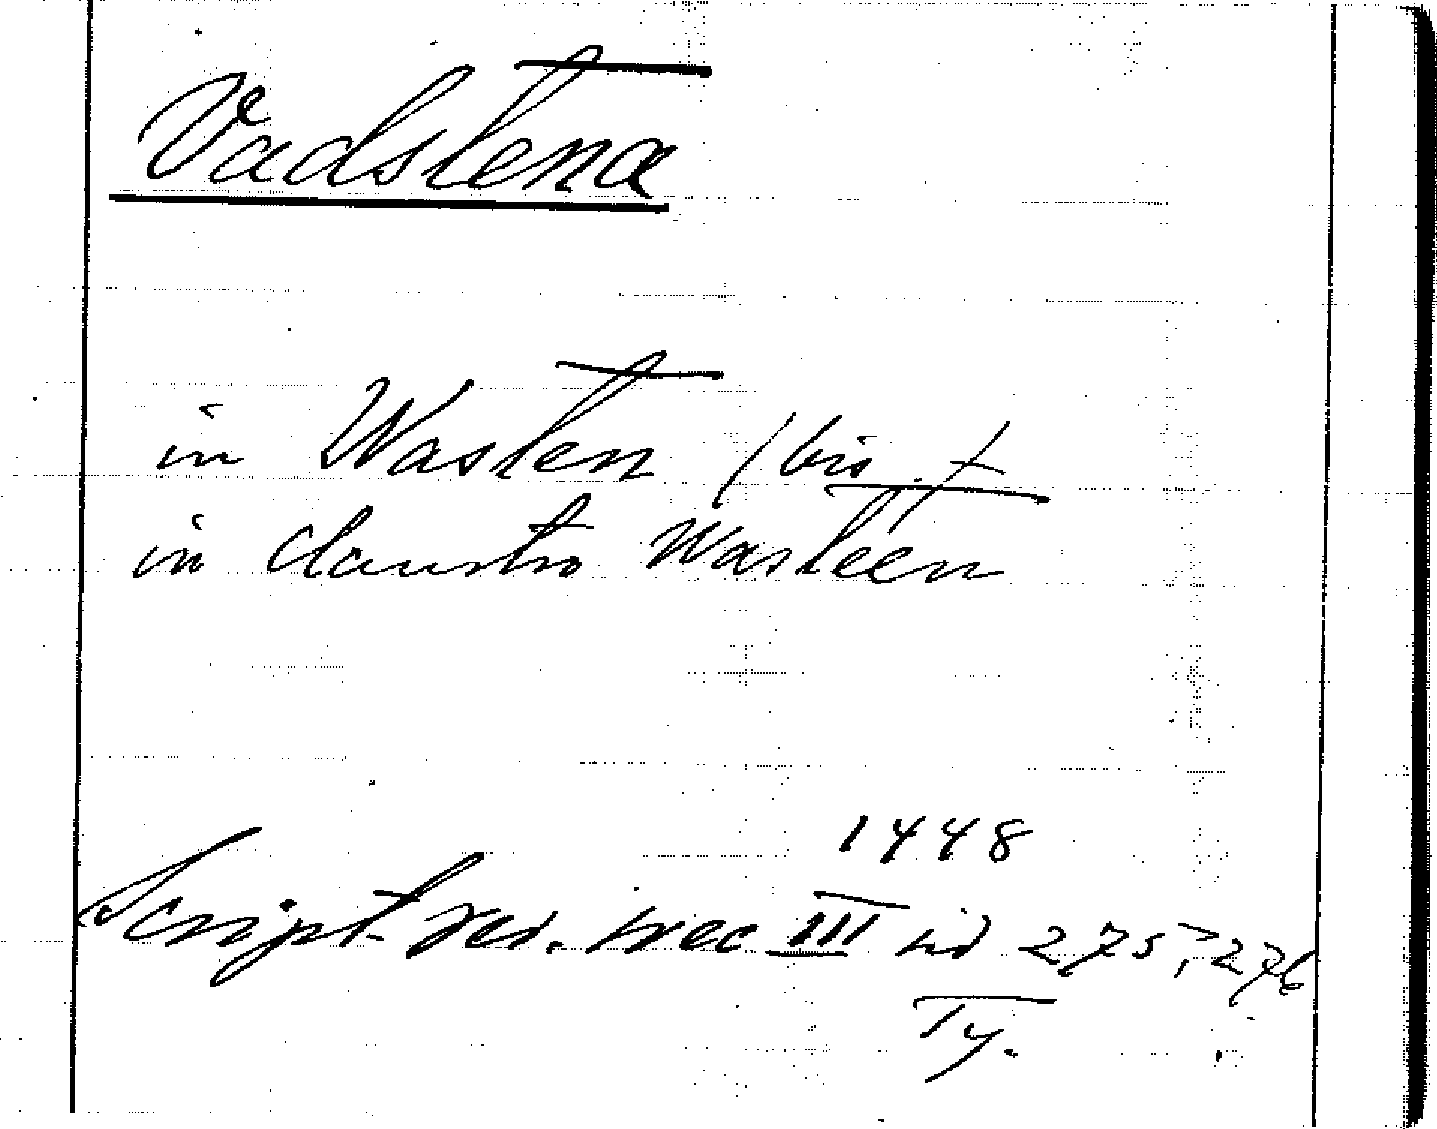 Vadstena
in Wasten (bis)
in claustro Wasteen
1448
Script. rer. svec III sid 275, 276
Ty.